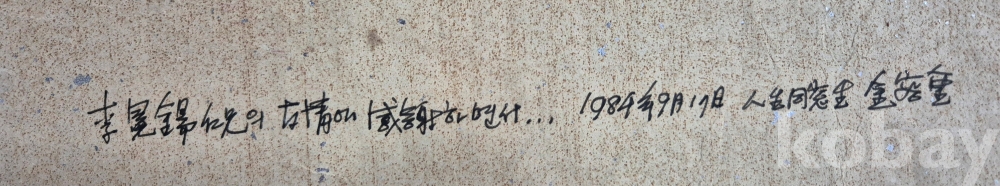 李冕錫 仁兄의 友情에 感謝하면서... 1984年9月17日 人生同窓生 金容

kobay